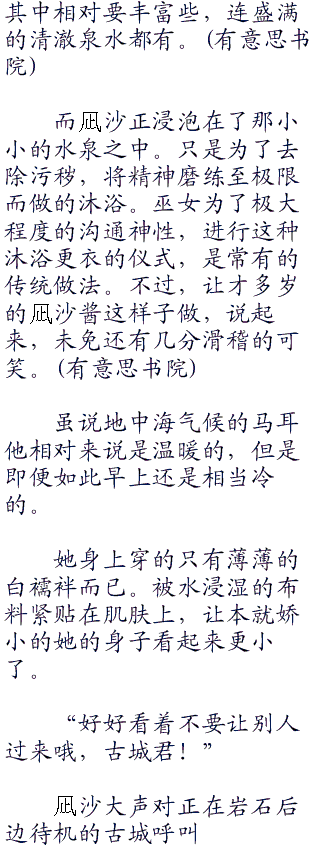 其中相对要丰富些，连盛满
的清澈泉水都有。(有意思书
院)
而凪沙正浸泡在了那小
小的水泉之中。只是为了去
除污秽，将精神磨练至极限
而做的沐浴。巫女为了极大
程度的沟通神性，进行这种
沐浴更衣的仪式，是常有的
传统做法。不过，让才多岁
的凪沙酱这样子做，说起
来，未免还有几分滑稽的可
笑。(有意思书院)
虽说地中海气候的马耳
他相对来说是温暖的，但是
即便如此早上还是相当冷
的。
她身上穿的只有薄薄的
白襦袢而已。被水浸湿的布
料紧贴在肌肤上，让本就娇
小的她的身子看起来更小
了。
“好好看着不要让别人
过来哦，古城君！”
凪沙大声对正在岩石后
边待机的古城呼叫